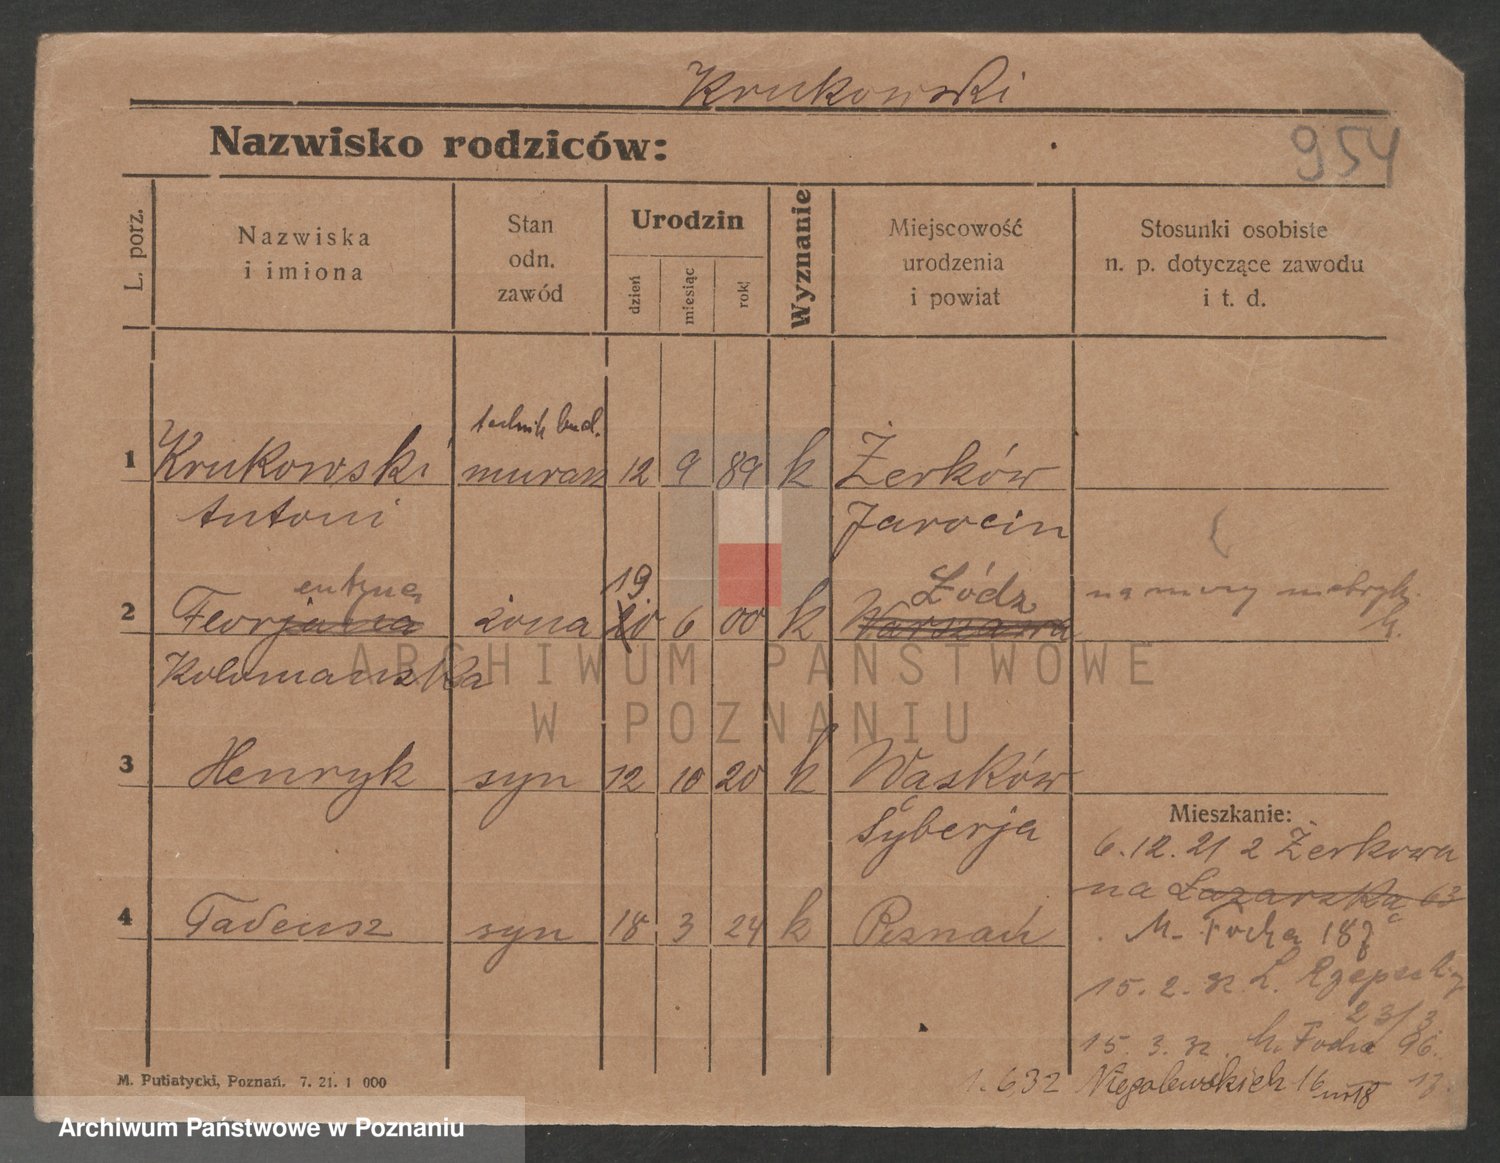 Krukowski
Nazwisko rodziców:
954
L. porz.
Nazwiska
i imiona
Stan
odn.
zawód
Urodzin
dzień
miesiąc
rok
Wyznanie
Miejscowość
urodzenia
i powiat
Stosunki osobiste
n. p. dotyczące zawodu
i t. d.
technik bud.
1 Krukowski murarz 12 9 89 k Żerków
Antoni Jarocin
entyna 19. Łódz
2 Florjana żona 20 6 00 k Warszawa
Kolomańska
3 Henryk syn 12 10 20 k Wasków
Syberja
Mieszkanie:
6.12.21 z Żerkowa
na Łazarską 63
4 Tadeusz syn 18 3 24 k Poznań
M. Focha 187
15.2.32 L. Rzepeckiej
23/3
15.3.32. M. Focha 96.
1.6.32 Niegolewskich 16
M. Putiatycki, Poznań. 7. 21. 1 000
ARCHIWUM PAŃSTWOWE
W POZNANIU
Archiwum Państwowe w Poznaniu